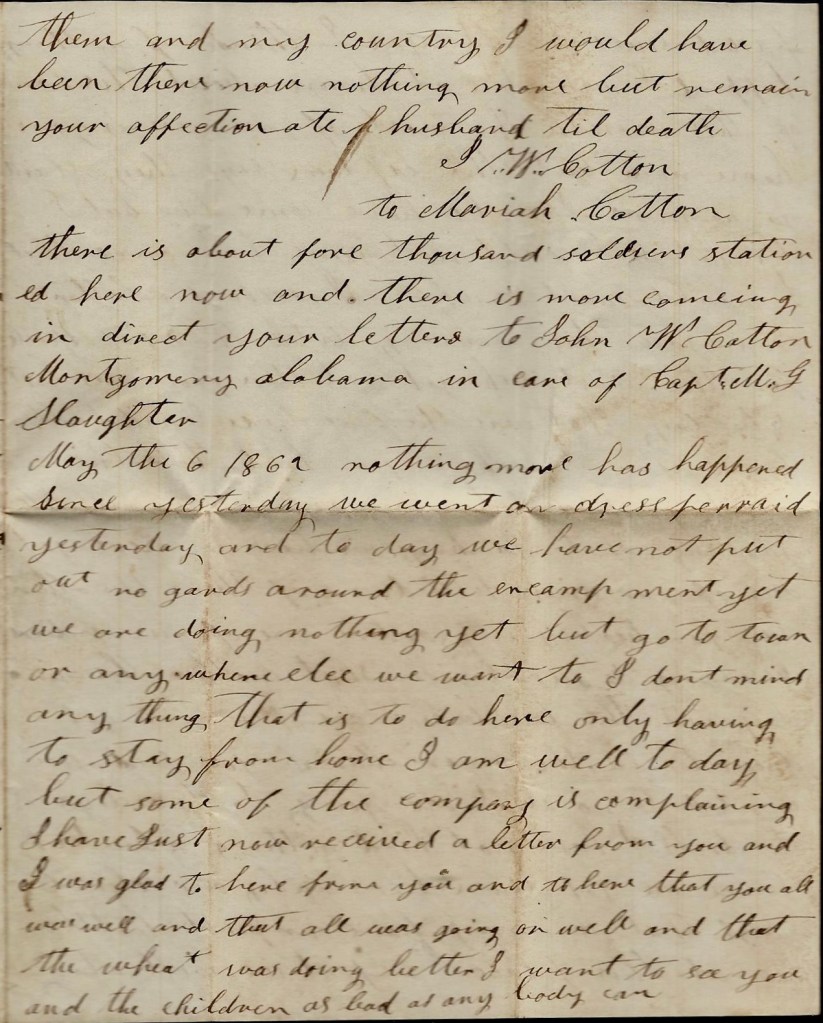 them and my country I would have
been there now nothing more but remain
your affectionate husband til death
J. W. Cotton
to Mariah Cotton
there is about fore thousand soldiers station
ed here now and there is more comeing
in direct your letters to John W Cotton
Montgomery alabama in care of Capt. M. G
Slaughter
May the 6 1862 nothing more has happened
since yesterday we went on dress perraid
yesterday and to day we have not put
out no gards around the encampment yet
we are doing nothing yet but go to town
or any where else we want to I dont mind
any thing that is to do here only having
to stay from home I am well to day
but some of the company is complaining
I have Just now received a letter from you and
I was glad to here from you and to here that you all
was well and that all was going on well and that
the wheat was doing better I want to see you
and the children as bad as any body can